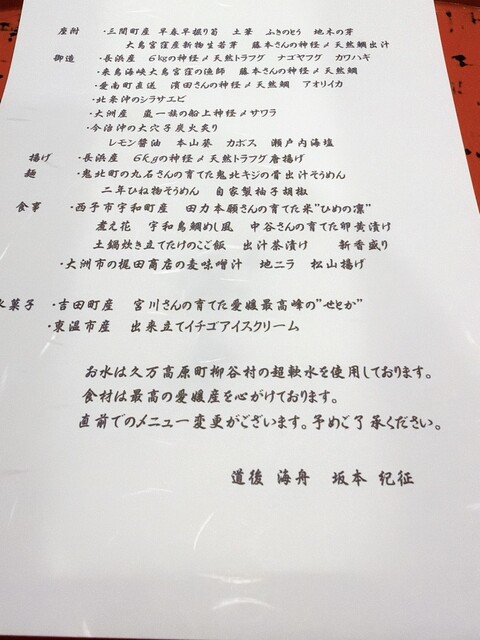 座附 ・三間町産 早春早掘り筍 土筆 ふきのとう 地木の芽
大島宮窪産新物生若芽 藤本さんの神経〆天然鯛出汁
御造 ・長浜産 6kgの神経〆天然トラフグ ナゴヤフグ カワハギ
・来島海峡大島宮窪の漁師 藤本さんの神経〆天然鯛
・愛南町直送 濱田さんの神経〆天然鯛 アオリイカ
・北来沖のシラサエビ
・大洲産 嵐一族の船上神経〆サワラ
・今治沖の大穴子炭火炙り
レモン醤油 本山葵 カボス 瀬戸内海塩
揚げ ・長浜産 6kgの神経〆天然トラフグ唐揚げ
麺 ・鬼北町の丸石さんの育てた鬼北キジの骨出汁そうめん
二年ひね物そうめん 自家製柚子胡椒
食事 ・西予市宇和町産 田力本願さんの育てた米"ひめの凜"
煮え花 宇和島鯛めし風 中谷さんの育てた卵黄漬け
土鍋炊き立てたけのこご飯 出汁茶漬け 新香盛り
・大洲市の梶田商店の麦味噌汁 地ニラ 松山揚げ
水菓子 ・吉田町産 宮川さんの育てた愛媛最高峰の"せとか"
・東温市産 出来立てイチゴアイスクリーム
お水は久万高原町柳谷村の超軟水を使用しております。
食材は最高の愛媛産を心がけております。
直前でのメニュー変更がございます。予めご了承ください。
道後 海舟 坂本 紀征